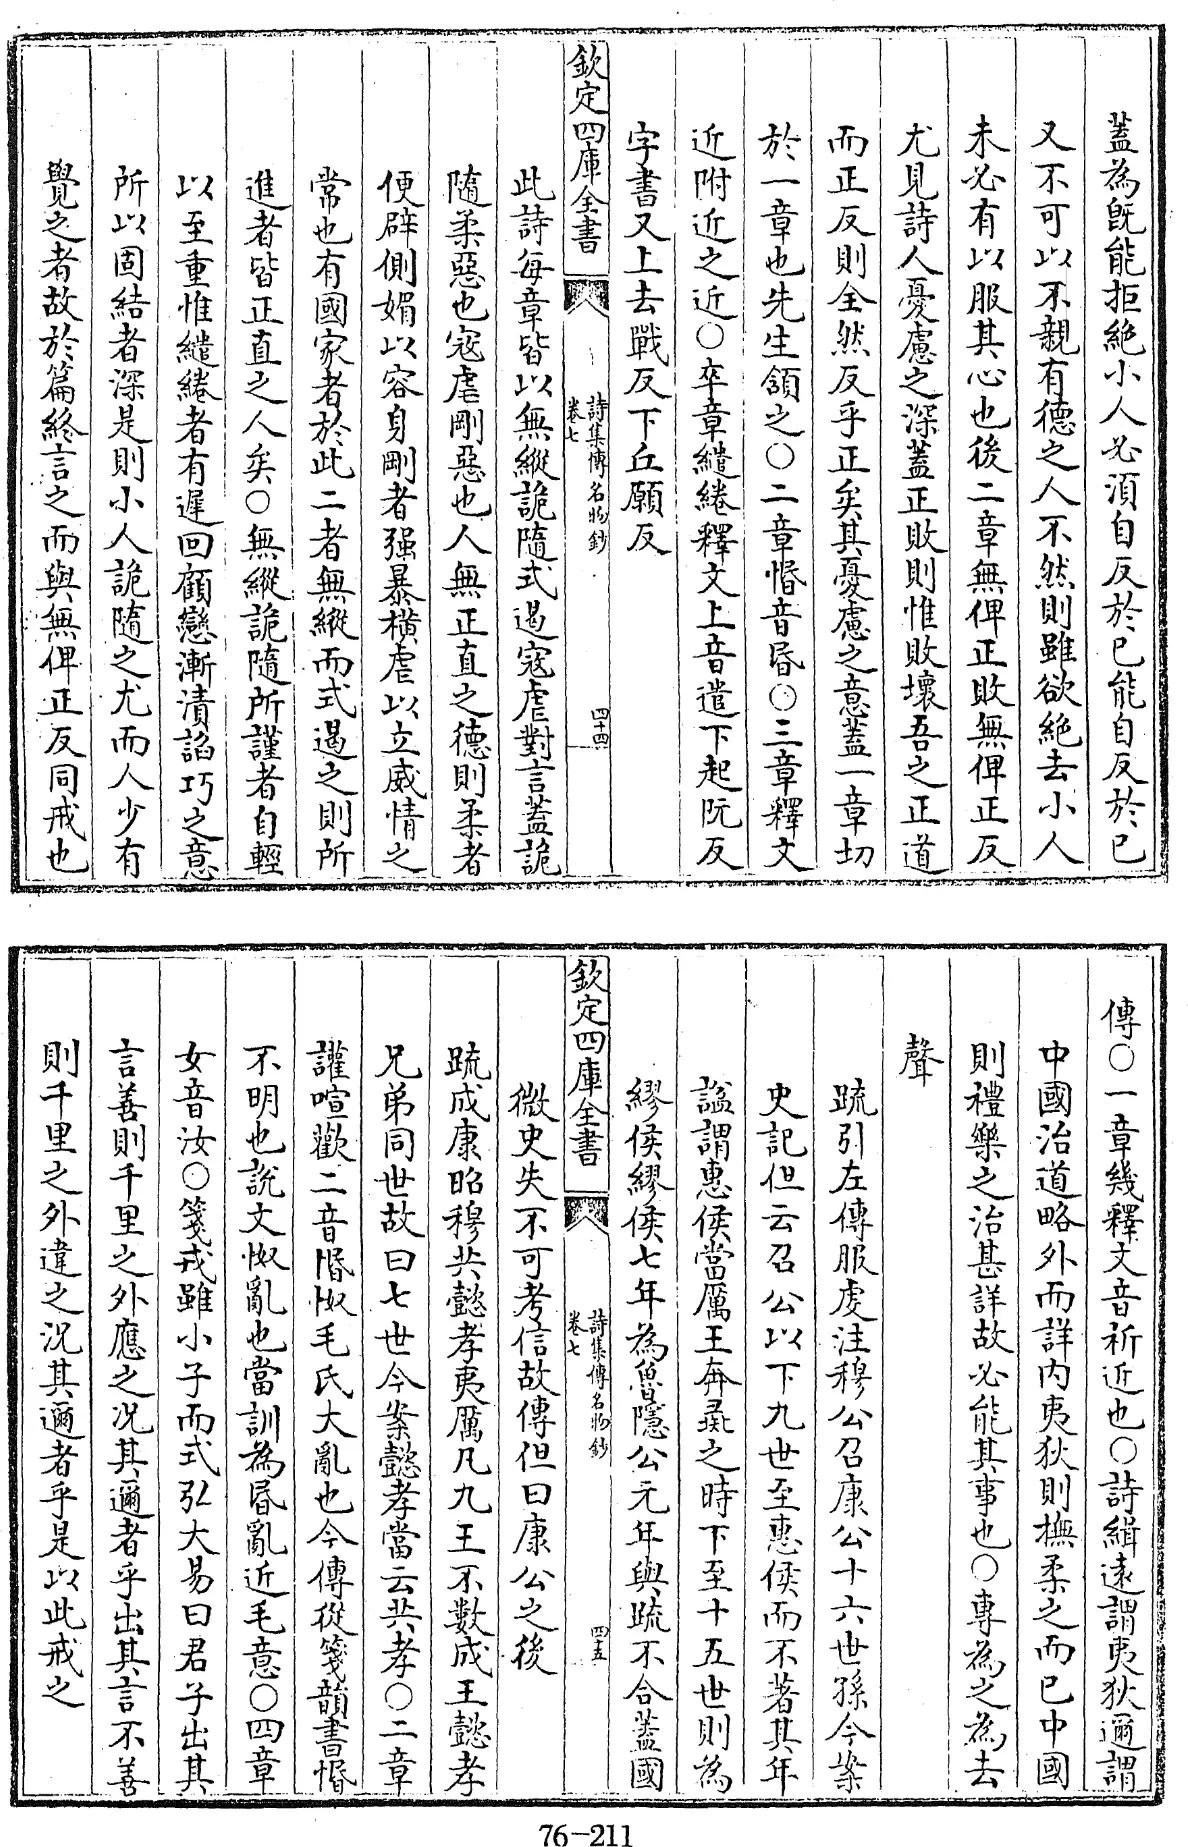 蓋為既能拒絶小人必須自反於已能自反於已
又不可以不親有德之人不然則雖欲絶去小人
未必有以服其心也後二章無俾正敗無俾正反
尤見詩人憂慮之深蓋正敗則惟敗壞吾之正道
而正反則全然反乎正矣其憂慮之意蓋一章切
於一章也先生頷之○二章惛音昬○三章釋文
近附近之近○卒章繾綣釋文上音遣下起阮反
字書又上去戰反下丘願反
欽定四庫全書
詩集傳名物鈔
卷七
四十四
此詩每章皆以無縱詭隨式遏寇虐對言蓋詭
隨柔惡也寇虐剛惡也人無正直之德則柔者
便辟側媚以容身剛者强暴横虐以立威情之
常也有國家者於此二者無縱而式遏之則所
進者皆正直之人矣○無縱詭隨所謹者自輕
以至重惟繾綣者有遲回顧戀漸漬諂巧之意
所以固結者深是則小人詭隨之尤而人少有
覺之者故於篇終言之而與無俾正反同戒也
傳○一章幾釋文音祈近也○詩緝逺謂夷狄邇謂
中國治道略外而詳内夷狄則撫柔之而已中國
則禮樂之治甚詳故必能其事也○專為之為去
聲
疏引左傳服虔注穆公召康公十六世孫今案
史記但云召公以下九世至惠侯而不著其年
諡謂惠侯當厲王奔彘之時下至十五世則為
繆侯繆侯七年為魯隱公元年與疏不合蓋國
欽定四庫全書
詩集傳名物鈔
卷七
四十五
微史失不可考信故傳但曰康公之後
疏成康昭穆共懿孝夷厲凡九王不數成王懿孝
兄弟同世故曰七世今案懿孝當云共孝○二章
讙喧歡二音惛怓毛氏大亂也今傳從箋韻書惛
不明也說文怓亂也當訓為昬亂近毛意○四章
女音汝○箋戎雖小子而式弘大易曰君子出其
言善則千里之外應之况其邇者乎出其言不善
則千里之外違之况其邇者乎是以此戒之
76-211